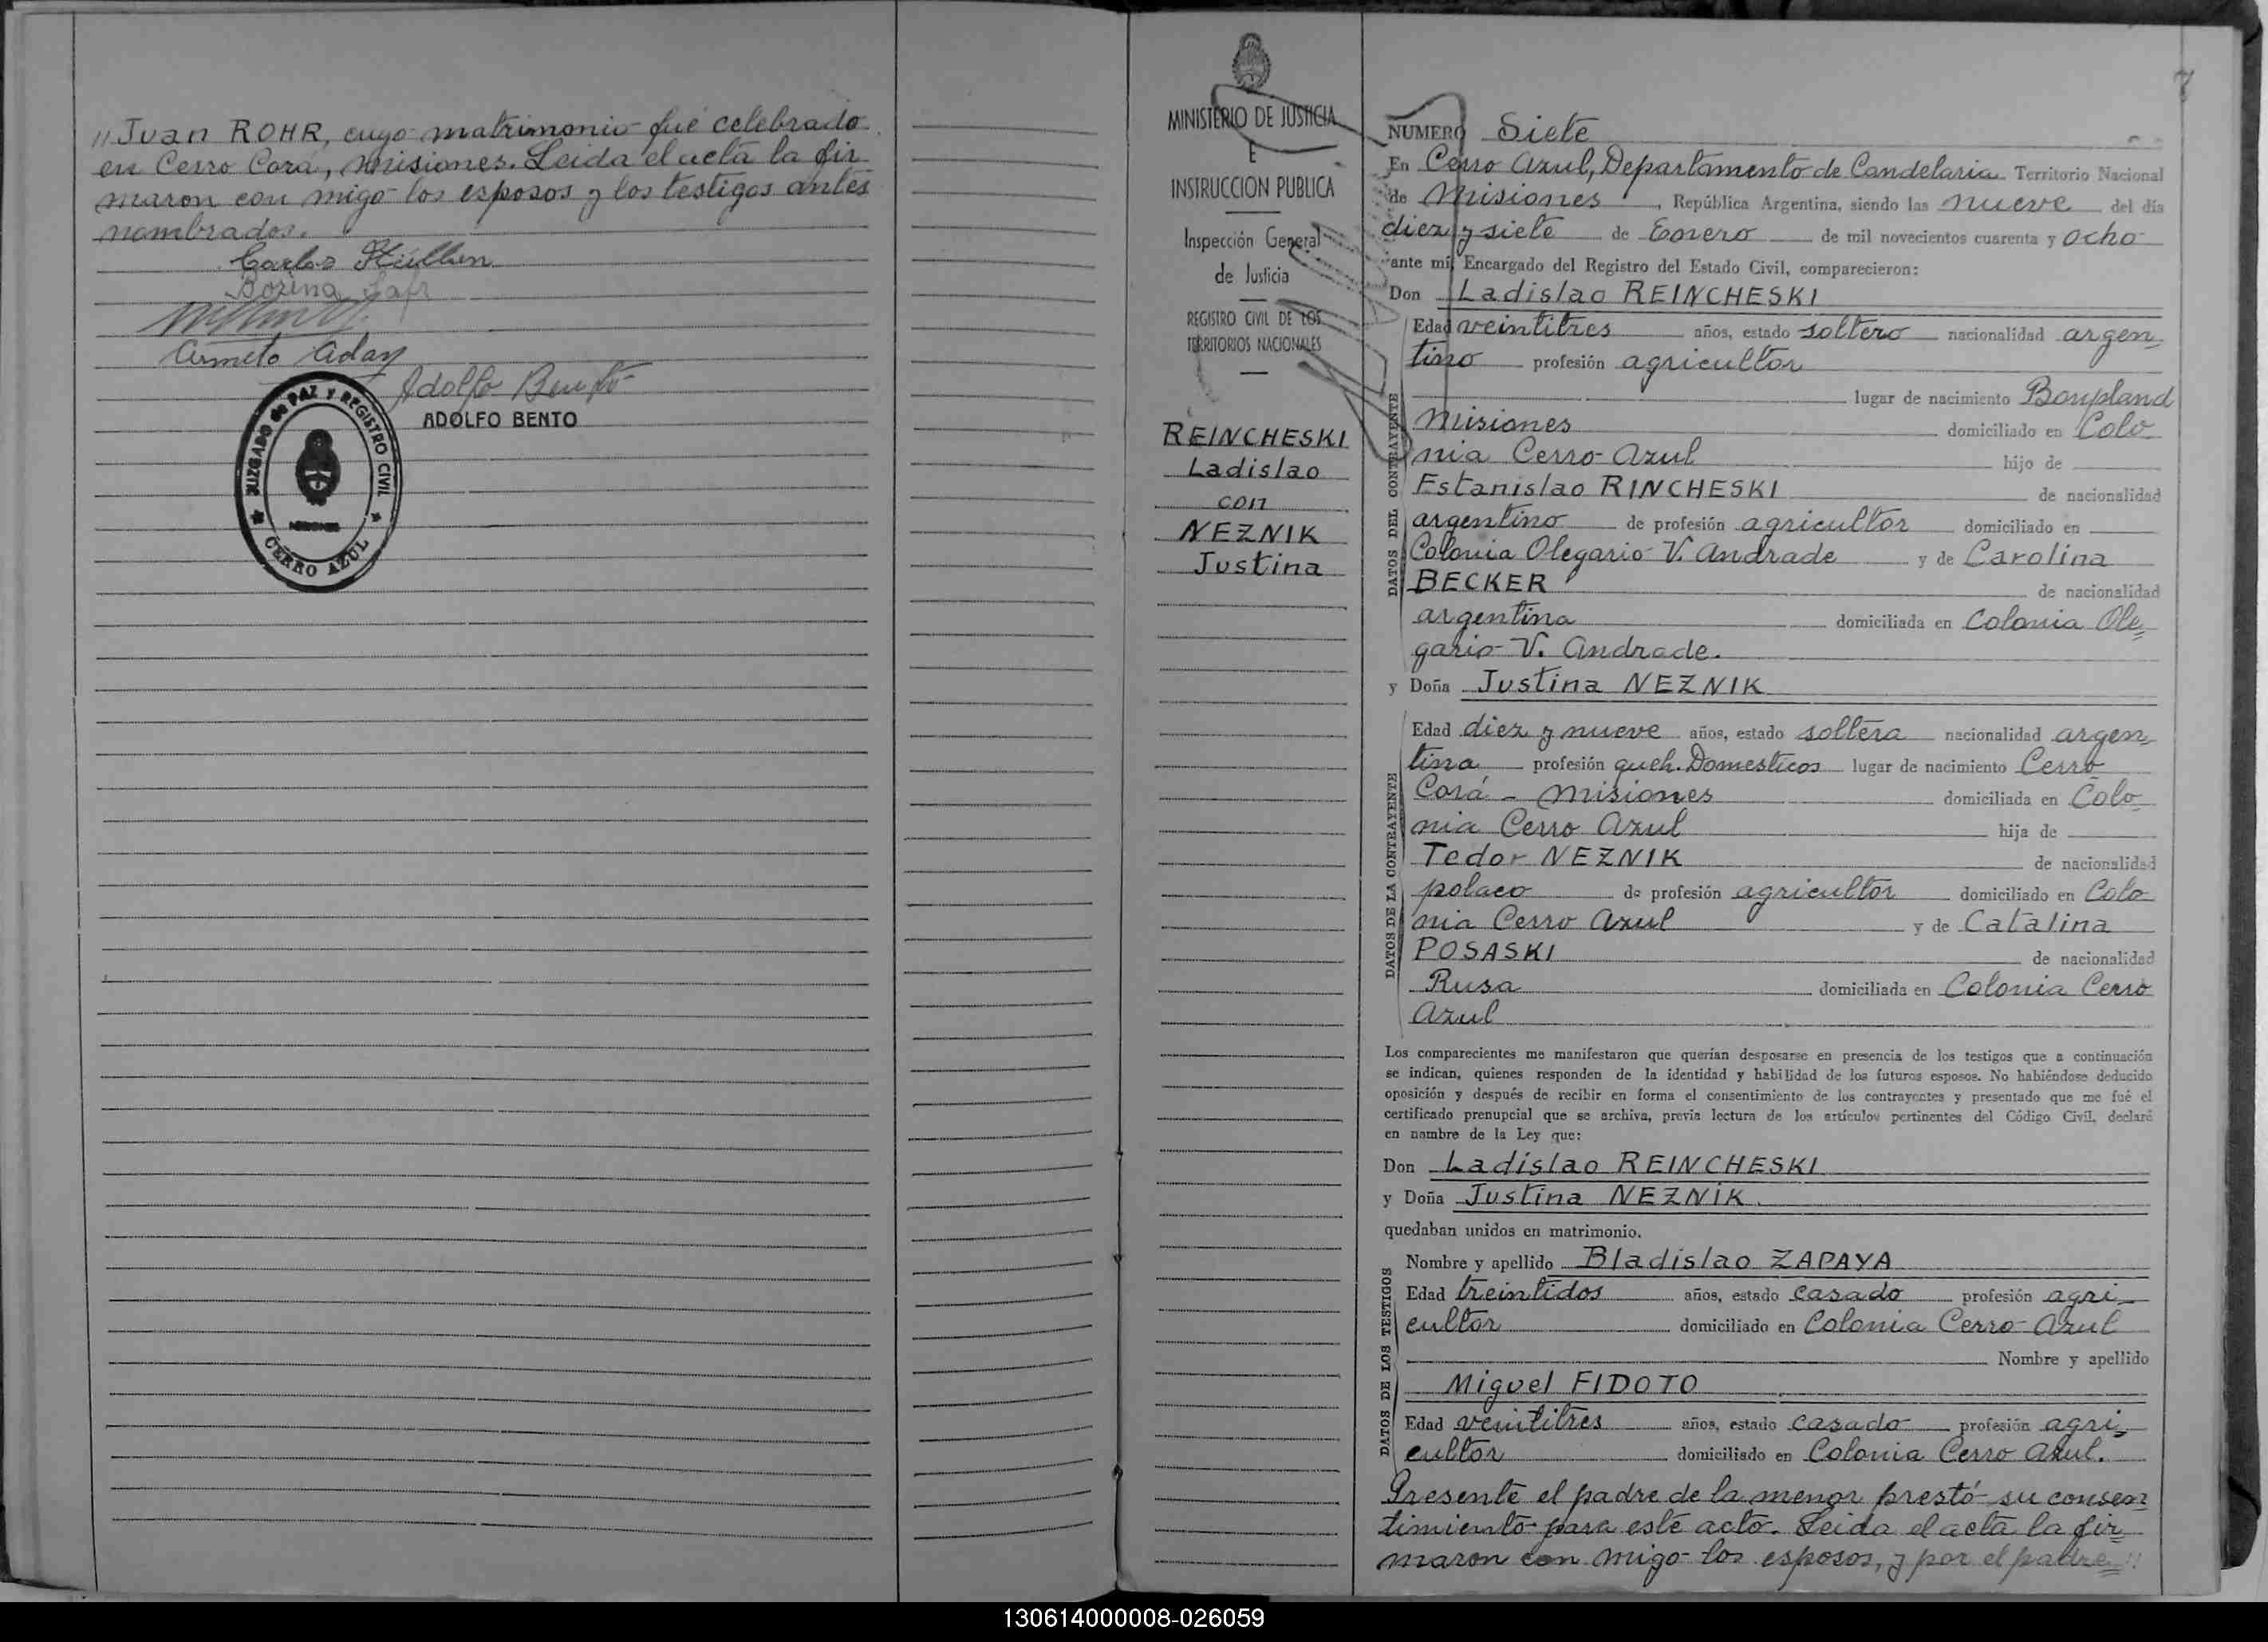 " Juan ROHR, cuyo matrimonio fué celebrado
en Cerro Corá, Misiones. Leida el acta la fir
maron con migo los esposos y los testigos antes
nombrados.
Carlos
Bozena
Adolfo Bento
ADOLFO BENTO
JUZGADO de PAZ Y REGISTRO CIVIL
MISIONES
CERRO AZUL
MINISTERIO DE JUSTICIA
E
INSTRUCCION PUBLICA
Inspección General
de Justicia
REGISTRO CIVIL DE LOS
TERRITORIOS NACIONALES
REINCHESKI
Ladislao
con
NEZNIK
Justina
7
NUMERO Siete
En Cerro Azul, Departamento de Candelaria Territorio Nacional
de Misiones, República Argentina, siendo las nueve del día
diez y siete de Enero de mil novecientos cuarenta y ocho
ante mí, Encargado del Registro del Estado Civil, comparecieron:
Don Ladislao REINCHESKI
DATOS DEL CONTRAYENTE
Edad veintitres años, estado soltero nacionalidad argen=
tino profesión agricultor
lugar de nacimiento Bonpland
Misiones domiciliado en Colo
nia Cerro Azul hijo de
Estanislao RINCHESKI de nacionalidad
argentino de profesión agricultor domiciliado en
Colonia Olegario V. Andrade y de Carolina
BECKER de nacionalidad
argentina domiciliada en Colonia Ole=
gario V. Andrade.
y Doña Justina NEZNIK
DATOS DE LA CONTRAYENTE
Edad diez y nueve años, estado soltera nacionalidad argen=
tina profesión queh. Domesticos lugar de nacimiento Cerro
Corá - Misiones domiciliada en Colo
nia Cerro Azul hija de
Tedor NEZNIK de nacionalidad
polaco de profesión agricultor domiciliado en Colo
nia Cerro Azul y de Catalina
POSASKI de nacionalidad
Rusa domiciliada en Colonia Cerro
Azul
Los comparecientes me manifestaron que querían desposarse en presencia de los testigos que a continuación
se indican, quienes responden de la identidad y habilidad de los futuros esposos. No habiéndose deducido
oposición y después de recibir en forma el consentimiento de los contrayentes y presentado que me fué el
certificado prenupcial que se archiva, previa lectura de los artículos pertinentes del Código Civil, declaré
en nombre de la Ley que:
Don Ladislao REINCHESKI
y Doña Justina NEZNIK
quedaban unidos en matrimonio.
DATOS DE LOS TESTIGOS
Nombre y apellido Bladislao ZAPAYA
Edad treintidos años, estado casado profesión agri
cultor domiciliado en Colonia Cerro Azul
Nombre y apellido
Miguel FIDOTO
Edad veintitres años, estado casado profesión agri=
cultor domiciliado en Colonia Cerro Azul.
Presente el padre de la menor prestó su consen=
timiento para este acto. Leida el acta la fir=
maron con migo los esposos, y por el padre "
130614000008-026059